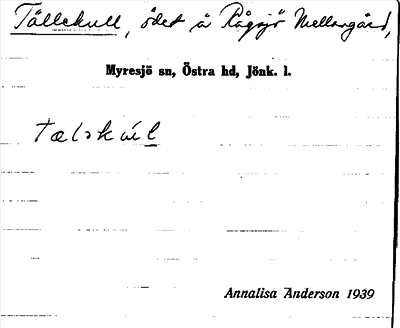 Tällekull, ödet å Rågsjö Mellangård,
Myresjö sn, Östra hd, Jönk. l.
Annalisa Anderson 1939